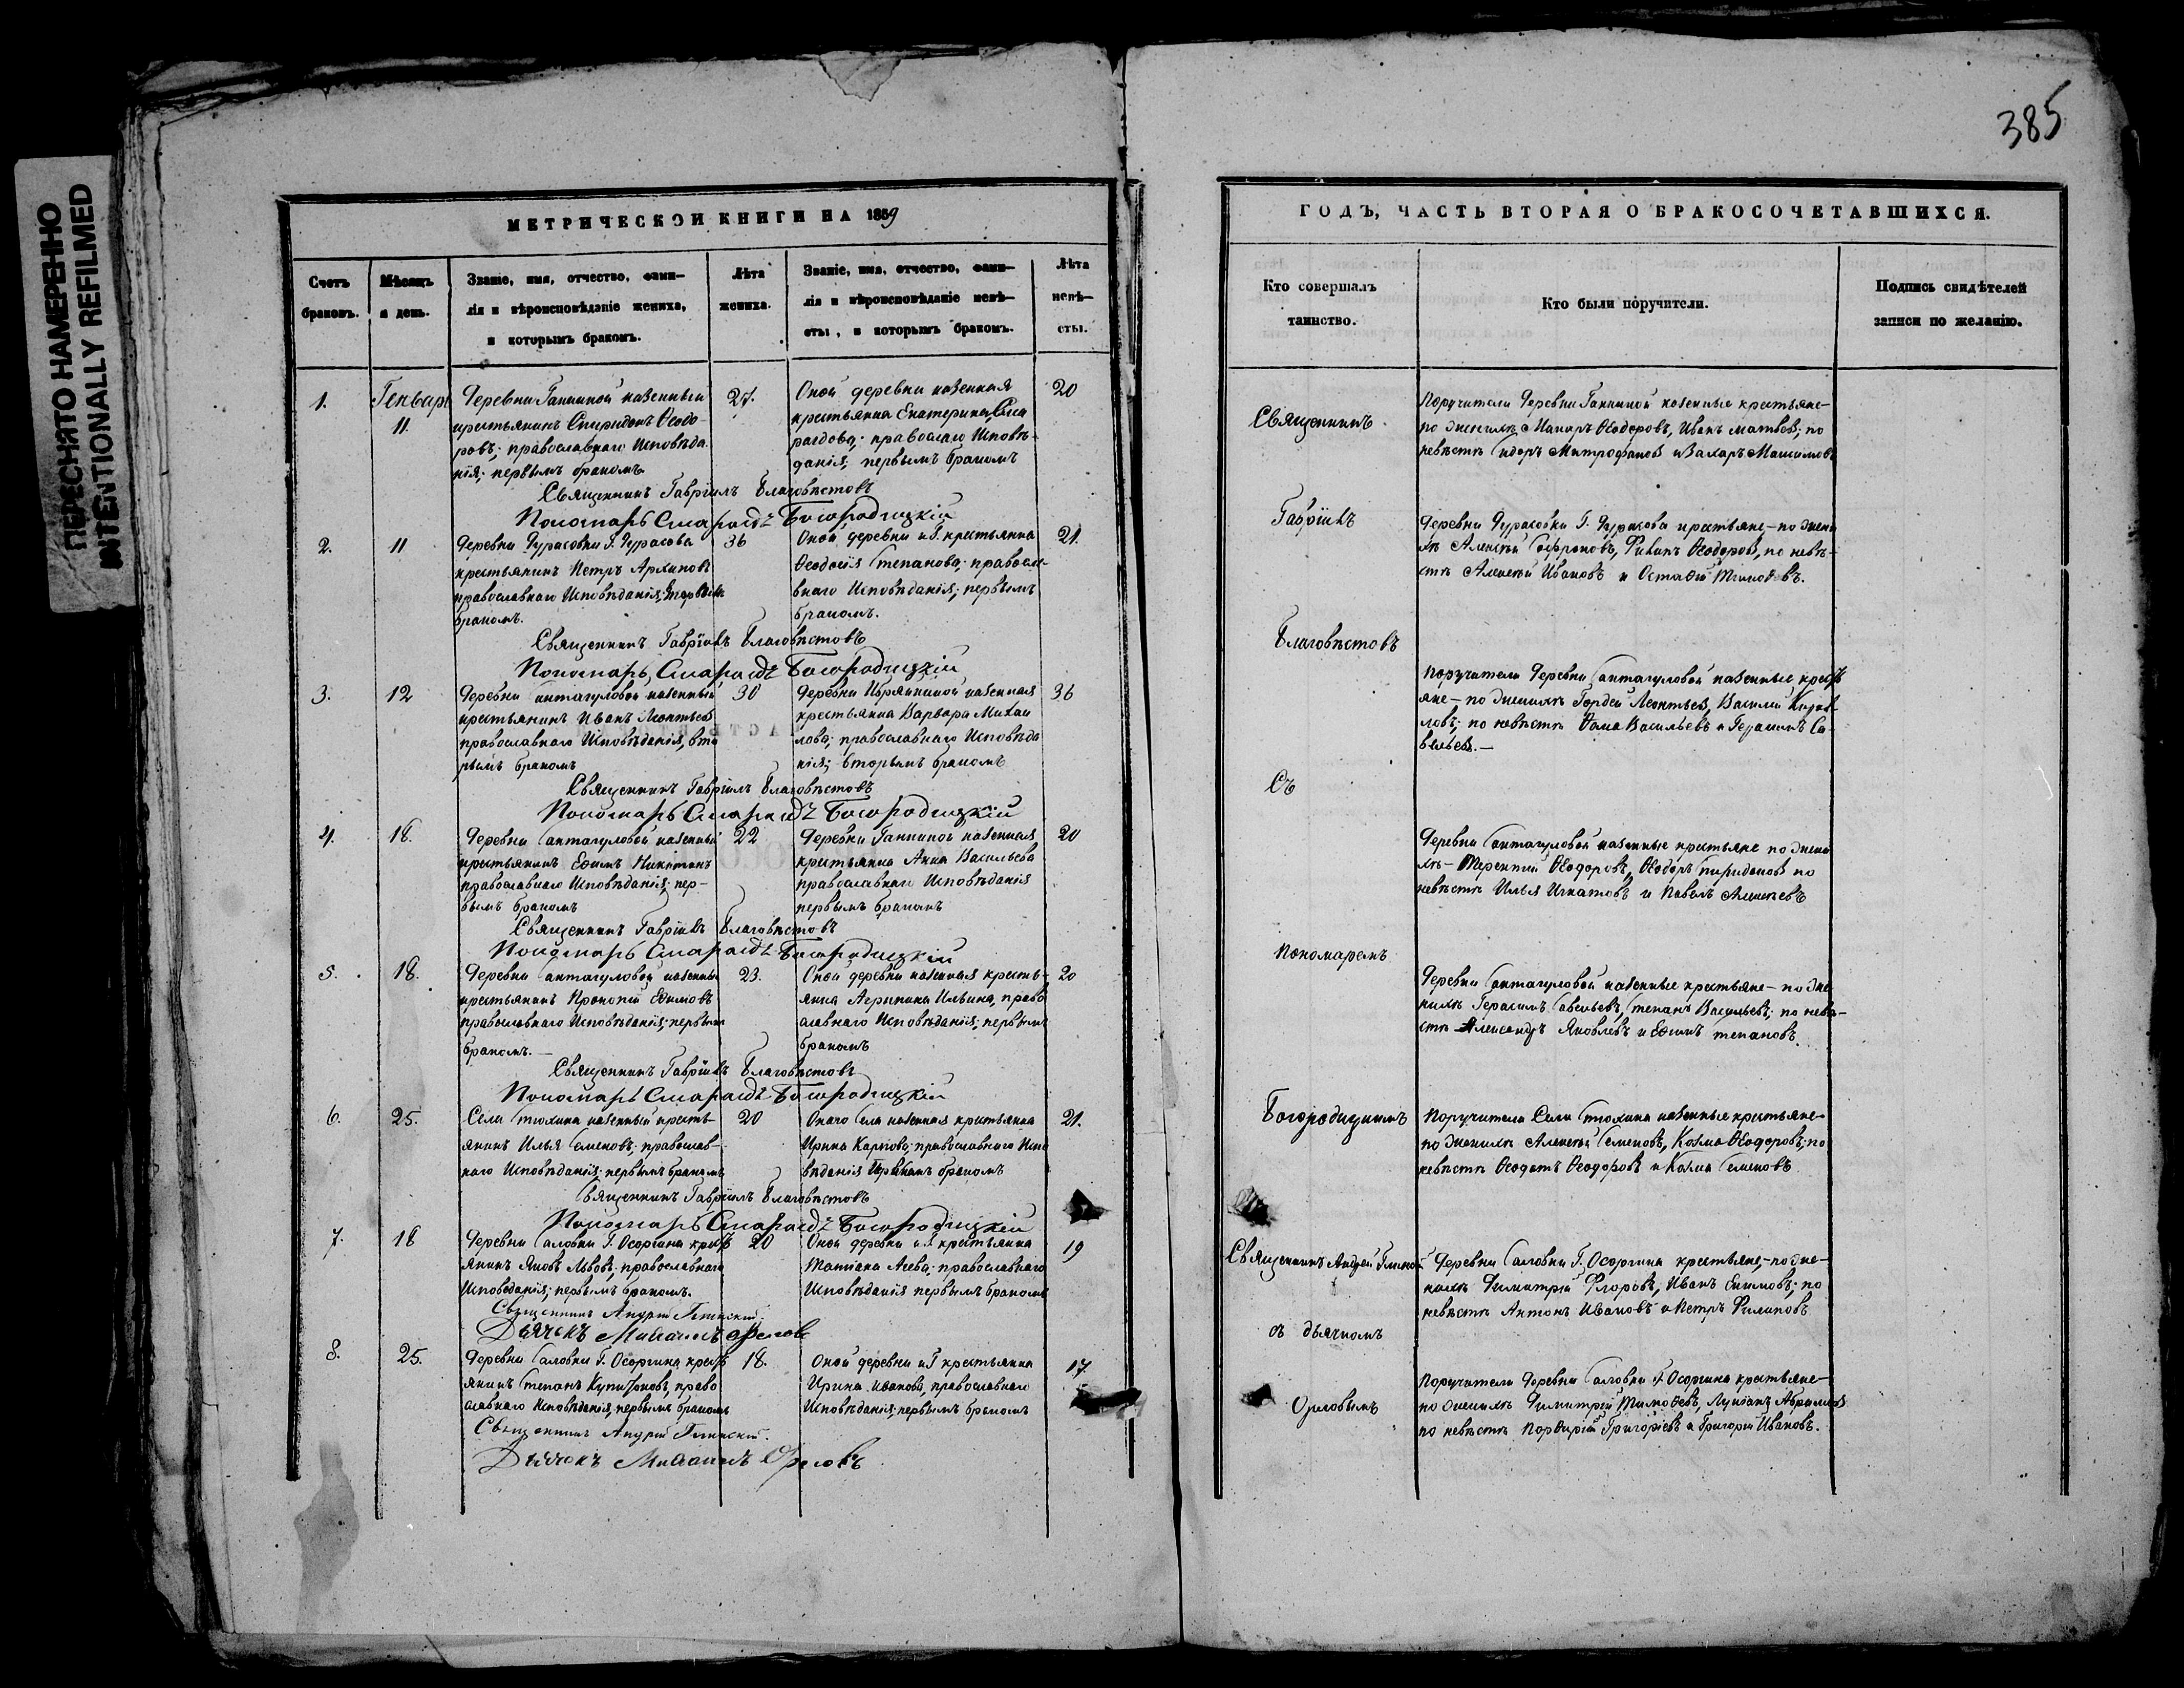 ПЕРЕСНЯТО НАМЕРЕННО
INTENTIONALLY REFILMED
385
МЕТРИЧЕСКОЙ КНИГИ НА 1859
Счетъ
браковъ.
Мѣсяцъ
и день.
Званіе, имя, отчество, фами-
лія и вѣроисповѣданіе жениха,
и которымъ бракомъ.
Лѣта
жениха.
Званіе, имя, отчество, фами-
лія и вѣроисповѣданіе невѣ-
сты, и которымъ бракомъ.
Лѣта
невѣ-
сты.
1.
Генваря
11.
Деревни Ганькиной казенный
крестьянинъ Спиридонъ Ѳеодо-
ровъ; православнаго Исповѣда
нія; первымъ бракомъ
27.
Оной деревни казенная
крестьянка Екатерина
православнаго Исповѣ-
данія; первымъ бракомъ
20
Священникъ Гавріилъ Благовѣстовъ
Пономарь Смарагдъ Богородицкій
2.
11
Деревни Дурасовки Г. Дурасова
крестьянинъ Петръ Архиповъ
православнаго Исповѣданія; первымъ
бракомъ.
36
Оной деревни и Г. крестьянка
Ѳеодосія Степанова; правосла-
внаго Исповѣданія; первымъ
бракомъ.
21.
Священникъ Гавріилъ Благовѣстовъ
Пономарь Смарагдъ Богородицкій
3.
12
Деревни казенный
крестьянинъ Иванъ Леонтьевъ
православнаго Исповѣданія, вто
рымъ бракомъ
30
Деревни казенная
крестьянка Варвара Михаи
лова; православнаго Исповѣда
нія; вторымъ бракомъ
36
Священникъ Гавріилъ Благовѣстовъ
Пономарь Смарагдъ Богородицкій
4.
18.
Деревни казенный
крестьянинъ Ефимъ Никитинъ
православнаго Исповѣданія; пер-
вымъ бракомъ
22
Деревни Ганькиной казенная
крестьянка Анна Васильева
православнаго Исповѣданія
первымъ бракомъ
20
Священникъ Гавріилъ Благовѣстовъ
Пономарь Смарагдъ Богородицкій
5.
18.
Деревни казенный
крестьянинъ Прокопій Ефимовъ
православнаго Исповѣданія; первымъ
бракомъ.—
23.
Оной деревни казенная кресть-
янка Агрипина Ильина, право
славнаго Исповѣданія; первымъ
бракомъ
20
Священникъ Гавріилъ Благовѣстовъ
Пономарь Смарагдъ Богородицкій
6.
25.
Села Стюхина казенный кресть-
янинъ Илья Семеновъ; православ-
наго Исповѣданія; первымъ бракомъ
20
Онаго Села казенная крестьянка
Ирина Карпова; православнаго Испо
вѣданія первымъ бракомъ
21.
Священникъ Гавріилъ Благовѣстовъ
Пономарь Смарагдъ Богородицкій
7.
18
Деревни Саловки Г. Осоргина крест
янинъ Яковъ Львовъ; православнаго
Исповѣданія; первымъ бракомъ.
20
Оной деревни и Г. крестьянка
Татіана православнаго
Исповѣданія первымъ бракомъ
19
Священникъ Андрей Глинскій
Дьячекъ Михаилъ Орловъ
8.
25.
Деревни Саловки Г. Осоргина крест
янинъ Степанъ право
славнаго Исповѣданія, первымъ бракомъ
18.
Оной деревни и Г крестьянка
Ирина Иванова, православнаго
Исповѣданія; первымъ бракомъ
17.
Священникъ Андрей Глинскій.
Дьячекъ Михаилъ Орловъ
ГОДЪ, ЧАСТЬ ВТОРАЯ О БРАКОСОЧЕТАВШИХСЯ.
Кто совершалъ
таинство.
Кто были поручители.
Подпись свидѣтелей
записи по желанію.
Священникъ
Гавріилъ
Благовѣстовъ
Съ
Пономаремъ
Богородицкимъ
Священникъ Андрей
съ дьячкомъ
Орловымъ
Поручители Деревни Ганькиной казенные крестьяне-
по женихѣ Макаръ Ѳеодоровъ, Иванъ Матвѣевъ; по
невѣстѣ Сидоръ Митрофановъ и Захаръ Максимовъ
Деревни Дурасовки Г. Дурасова крестьяне — по жени
хѣ Алексѣй Софроновъ, Ѳеодоровъ, по невѣ-
стѣ Алексѣй Ивановъ и Тимофеевъ.
Поручители Деревни казенные крест
яне — по женихѣ Гордей Леонтьевъ, Василій Кирил-
ловъ; по невѣстѣ Ѳома Васильевъ и Герасимъ Са-
вельевъ.—
Деревни казенные крестьяне по жени
хѣ — Терентій Ѳеодоровъ, Ѳеодоръ Спиридоновъ по
невѣстѣ Илья Игнатовъ и Павелъ Алексѣевъ
Деревни казенные крестьяне — по же
нихѣ Герасимъ Савельевъ, Степанъ Васильевъ; по невѣ-
стѣ Александръ Яковлевъ и Ефимъ Степановъ.
Поручители Села Стюхина казенные крестьяне-
по женихѣ Алексѣй Семеновъ, Козма Ѳеодоровъ; по
невѣстѣ Ѳеодотъ Ѳеодоровъ и Козма Семеновъ
Деревни Саловки Г. Осоргина крестьяне, — по же-
нихѣ Димитрій Флоровъ, Иванъ Екимовъ; по
невѣстѣ Антонъ Ивановъ и Петръ Филиповъ
Поручители Деревни Саловки Г. Осоргина крестьяне-
по женихѣ Димитрій Тимофеевъ, Лукіанъ Абрамовъ
по невѣстѣ Порфирій Григоріевъ и Григорій Ивановъ.